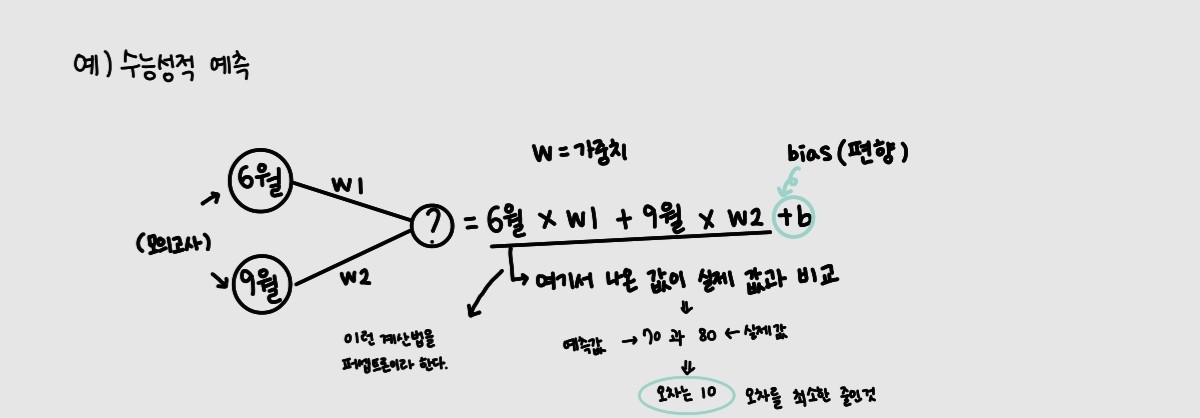 예) 수능성적 예측
W = 가중치
bias (편향)
6월
w1
(모의고사)
? = 6월 x w1 + 9월 x w2 +b
9월
w2
여기서 나온 값이 실제 값과 비교
이런 계산법을
퍼셉트론이라 한다.
예측값 → 70 과 80 ← 실제값
오차는 10 오차를 최소한 줄인것